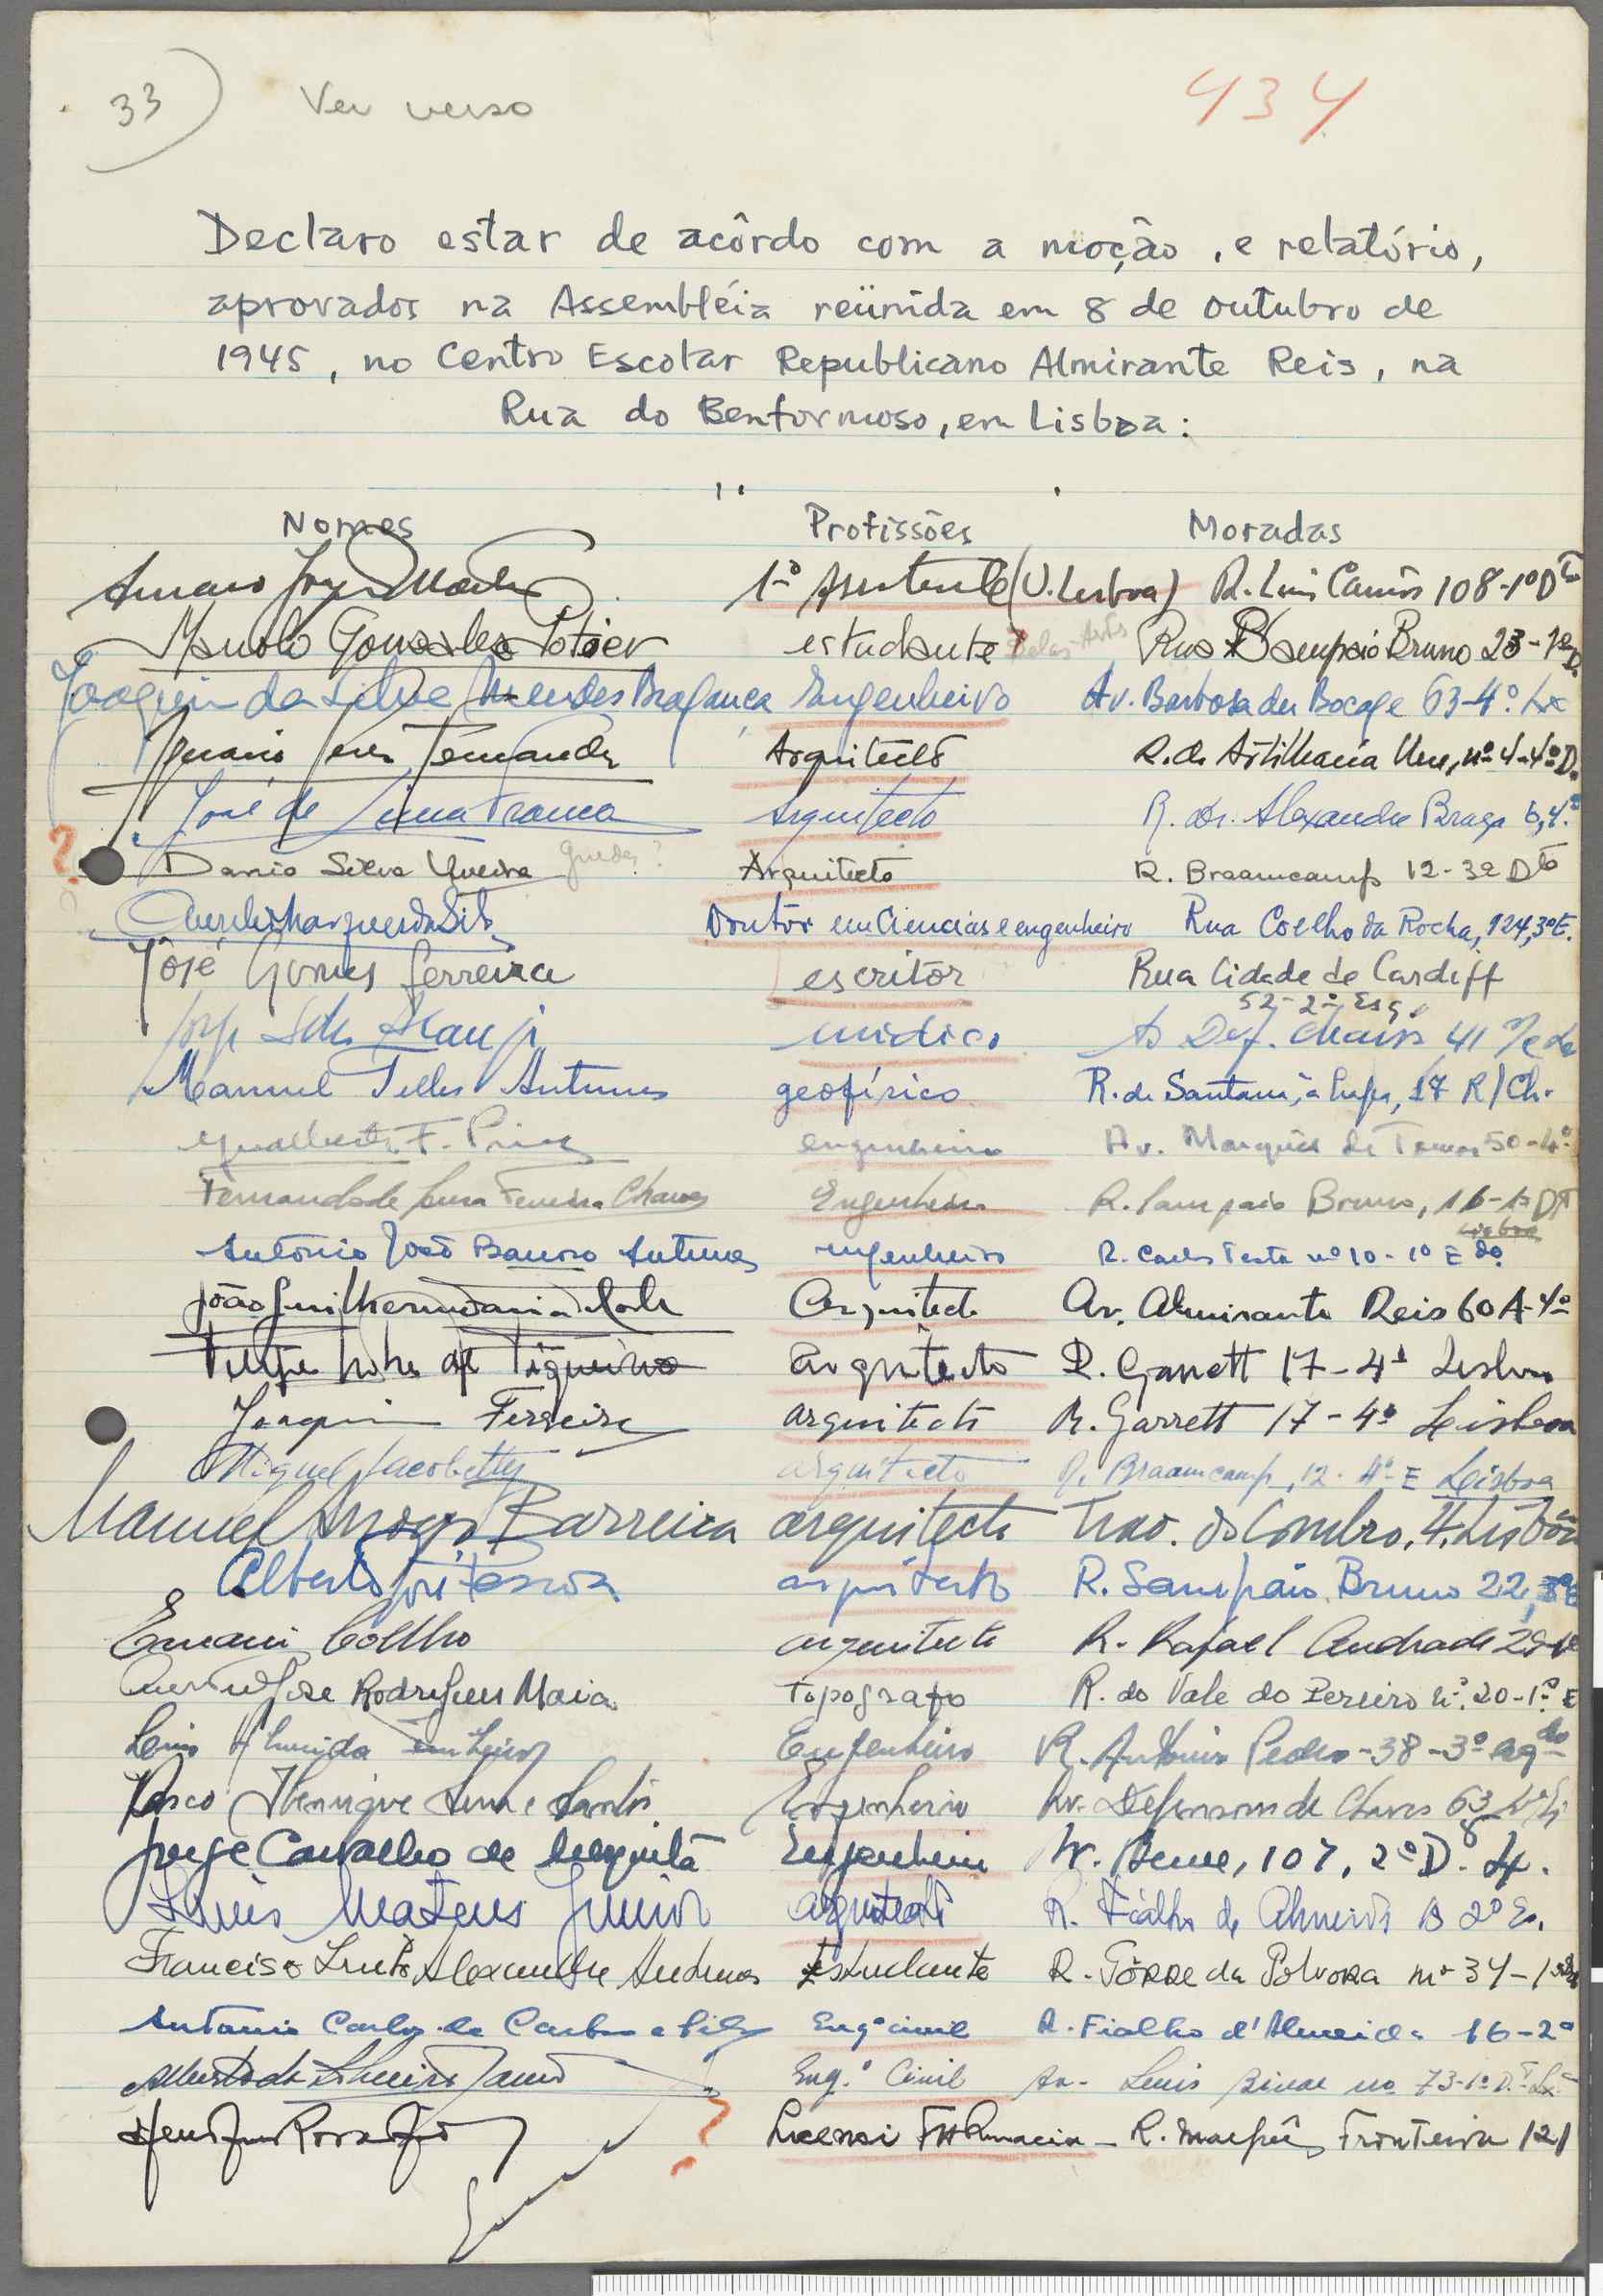 33) Ver verso 434
Declaro estar de acôrdo com a moção, e relatório,
aprovados na Assembléia reünida em 8 de outubro de
1945, no Centro Escolar Republicano Almirante Reis, na
Rua do Benformoso, em Lisboa:
Nomes Profissões Moradas
1º Assistente (U. Lisboa) R. Luis Camões 108-1º Dto
Gonzalez Potier estudante Belas-Artes Rua Sampaio Bruno 23-1º D.
Joaquim da Silva Mendes Bragança Engenheiro Av. Barbosa du Bocage 63-4º Lx
Ignacio Peres Fernandes Arquitecto R. de Artilharia Um, nº 4-4º D.
José de Lima Franco Arquitecto R. Dr. Alexandre Braga 6, 4º
? Dario Silva Vieira Guedes? Arquitecto R. Braamcamp 12-3º Dto
Aurelio Marques da Silva Doutor em Ciencias e engenheiro Rua Coelho da Rocha, 124, 3º E.
José Gomes Ferreira escritor Rua Cidade de Cardiff
52-2º Esq.
médico Av Def. Chaves 41
Manuel Telles Antunes geofísico R. de Santana, à Lapa, 17 R/Ch.
F. engenheiro Av. Marquês de Tomar 50-4º
Fernando de Ferreira Chaves Engenheiro R. Sampaio Bruno, 16-1º Dt
Lisboa
António João Antunes engenheiro R. Carlos Testa nº 10-1º E do.
João Guilherme Faria da Costa Arquitecto Av. Almirante Reis 60 A-4º
de Figueiredo arquitecto R. Garrett 17-4º Lisboa
Joaquim Ferreira arquitecto R. Garrett 17-4º Lisboa
Miguel Jacobetty arquitecto R. Braamcamp, 12-4º E Lisboa
Manuel Barreira arquitecto Trav. do Combro, 4, Lisboa
Alberto José Pessoa arquitecto R. Sampaio Bruno 22,
Ernani Coelho arquitecto R. Rafael Andrade
José Rodrigues Maia Topografo R. do Vale do Pereiro nº 20-1º E
Luis Almeida Engenheiro R. António Pedro-38-3º
Vasco Henrique Santos Engenheiro Av. Defensores de Chaves 63
Jorge Carvalho de Mesquita Engenheiro Av. Berne, 107, 2º D. Lx.
Luis Mateus Junior arquitecto R. Fialho de Almeida 2º E.
Francisco Alexandre Antunes Estudante R. Tôrre da Polvora nº 34-1º
Antonio Carlos de e Silva Engº civil R. Fialho d'Almeida 16-2º
Alberto de Engº Civil Av. Luis Bivar nº 73-1º D.-Lx
? Licenci Farmacia - R. Marquês Fronteira 121